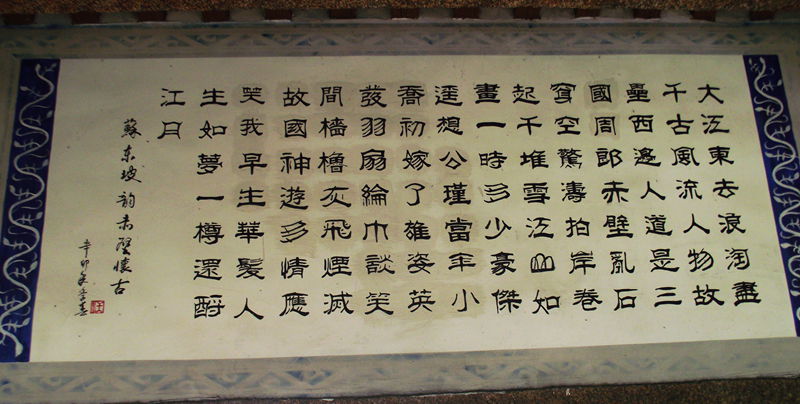 大江東去浪淘盡
千古風流人物故
壘西邊人道是三
國周郎赤壁亂石
穿空驚濤拍岸卷
起千堆雪江山如
畫一時多少豪傑
遥想公瑾當年小
喬初嫁了雄姿英
發羽扇綸巾談笑
間檣櫓灰飛煙滅
故國神遊多情應
笑我早生華髮人
生如夢一樽還酹
江月
蘇東坡韵赤壁懷古
辛卯